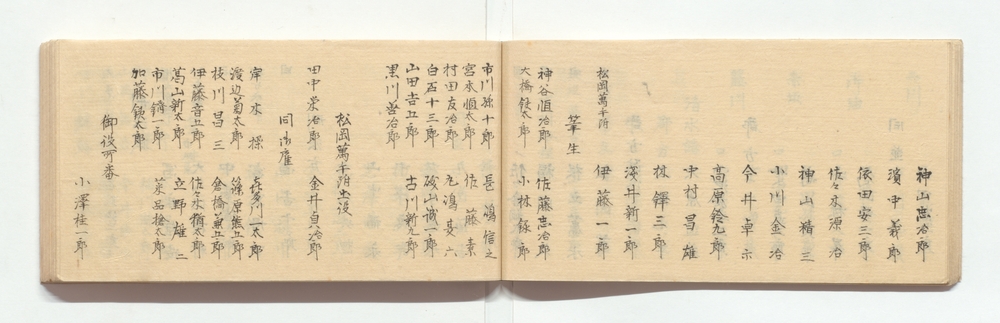 神山忠治郎
濱中義郎
依田安三郎
佐々木源治
神山精三
小川金治
今井卓示
高原鈴九郎
中村昌雄
林鐸三郎
浅井新一郎
伊藤一郎
松岡萬手附
筆生
神谷恒治郎 佐藤忠治郎
大橋鉄太郎 小林録郎
市川孫十郎 長鴻信之
宮本恒太郎 佐藤素
村田友治郎
白石十三郎
山田吉五郎 磯山誠一郎
黒川啓治郎 古川新九郎
松岡萬手附出役
田中栄治郎 金井貞治郎
同御雇
木操 喜多川一太郎
渡辺菊太郎 篠原熊五郎
枝川昌三 倉橋兼五郎
伊藤音五郎 佐々木楢太郎
葛山新太郎 立野雄二
市川錥一郎 菜品捨太郎
加藤鉄太郎
御役所番
小澤桂一郎